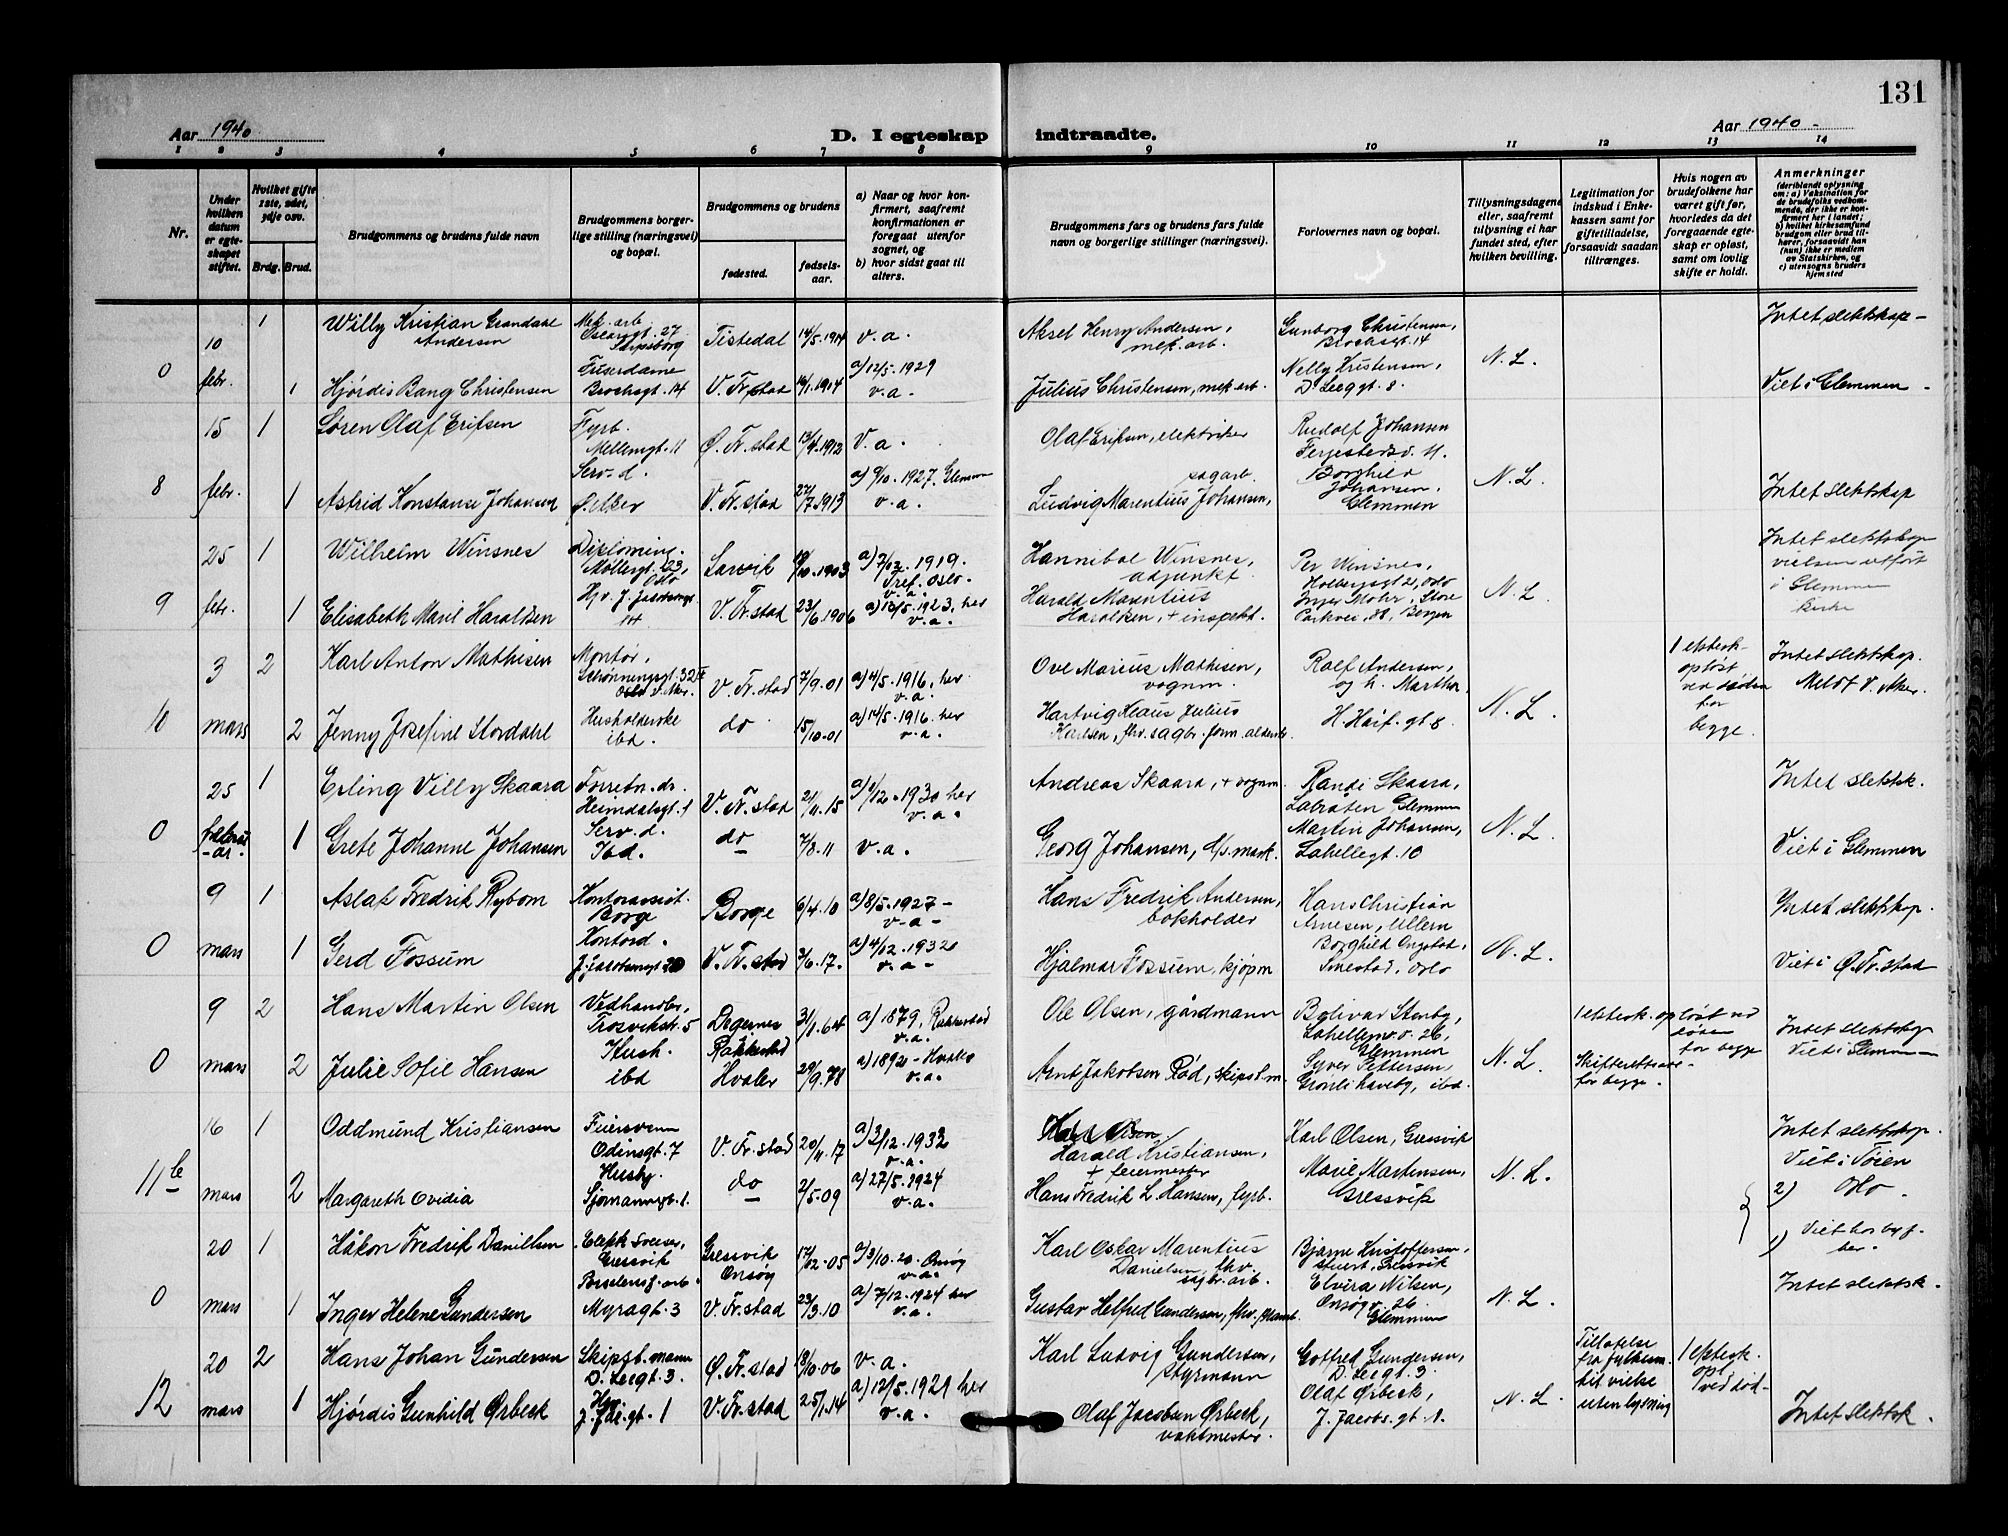 131
Aar 1940
D. I egteskap indtraadte.
Aar 1940
1 2 3 4 5 6 7 8 9 10 11 12 13 14
Nr.
Under hvilken datum er egteskapet stiftet.
Hvilket gifte 1ste, 2det, 3dje osv.
Brdg. Brud.
Brudgommens og brudens fulde navn
Brudgommens borgerlige stilling (næringsvei) og bopæl.
Brudgommens og brudens
fødested.
fødselsaar.
a) Naar og hvor konfirmert, saafremt konfirmationen er foregaat utenfor sognet, og
b) hvor sidst gaat til alters.
Brudgommens fars og brudens fars fulde navn og borgerlige stillinger (næringsvei).
Forlovernes navn og bopæl.
Tillysningsdagene eller, saafremt tillysning ei har fundet sted, efter hvilken bevilling.
Legitimation for indskud i Enkekassen samt for giftetilladelse, forsaavidt saadan tiltrænges.
Hvis nogen av brudefolkene har været gift før, hvorledes da det foregaaende egteskap er opløst, samt om lovlig skifte er holdt.
Anmerkninger
(deriblandt oplysning om: a) Vaksination for de brudefolks vedkommende, der ikke er konfirmert her i landet; b) hvilket kirkesamfund brudgom eller brud tilhører, forsaavidt han (hun) ikke er medlem av Statskirken, og c) utensogns bruders hjemsted
0
10 febr.
1 Willy Kristian Grandahl Andersen
Mek. arb. Oscarsgt. 27 Sarpsborg
Tistedal 14/5.1914 v.a.
Aksel Henry Andersen, mek. arb.
Gunborg Christensen, Brochsgt. 14
N.L.
Intet slektskap -
1 Hjørdis Bang Christensen
Brochsgt. 14
V. Fr.stad 1914
a) 12/5.1929 v.a.
Julius Christensen, mek. arb.
Nelly Kristensen, D. Leegt. 8.
Viet i Glemmen -
8
15 febr.
1 Søren Olaf Eriksen
Fyrb. Mellemgt. 11
Ø. Fr.stad 13/4.1912 v.a.
Olaf Eriksen, elektriker
Rudolf Johansen Ferjestedsv. 11.
N.L.
1 Astrid Konstanse Johansen
Serv.d.
V. Fr.stad 27/7.1913
a) 9/10.1927. Glemmen v.a.
Ludvig Marentius Johansen, sagarb.
Borghild Johansen, Glemmen
Intet slektskap
9
25 febr.
1 Wilhelm Winsnes
Diploming. Møllergt. 23, Oslo
Larvik 1903
a) 7/12.1919. Tref. Oslo. v.a.
Hannibal Winsnes, adjunkt.
Per Winsnes, Holbergsgt 21, Oslo
N.L.
Intet slektskap vielsen utført i Glemmen kirke
1 Elisabeth Maril Haraldsen
Hjv. J. Jacobsensgt. 14
V. Fr.stad 23/6.1906
1923, her v.a.
Harald Marentius Haraldsen, + inspekt.
Inger Mohr, Store Parkvei, Bergen
10
3 mars
2 Karl Anton Mathisen
Montør, Schønningsgt. 32 V. Aker.
V. Fr.stad 7/9.01
a) 4/5.1916, her v.a.
Ove Marius Mathisen, vognm.
Rolf Andersen, og h. Martha
N.L.
1 ektesk. opløst ved døden for begge.
Intet slektskap. Meldt V. Aker.
2 Jenny Josefine Stordahl
Husholderske ibd.
do 15/10.01
a) 14/5.1916. her v.a.
Hartvig Klaus Julius Karlsen, fhv. sagbr. form.
gt. 8.
0
25 februar.
1 Erling Villy Skaara
Forretn.dr. Heimdalsgt. 1
V. Fr.stad 21/11.15
1930 her v.a.
Andreas Skaara, + vognm.
Randi Skaara, Labråten Glemmen
N.L.
Intet slektsk.
1 Grete Johanne Johansen
Serv.d. Ibd.
do 7/8.11 v.a.
Georg Johansen,
Martin Johansen, Lahellegt. 10
Viet i Glemmen
0
9 mars
1 Aslak Fredrik Rybom
Kontorassist. Borge
Borge 6/4.10
a) 8/5.1927 - v-a-
Hans Fredrik Andersen, bokholder
Hans Christian Arnesen, Lillern
N.L.
Intet slektskap.
1 Gerd Fossum
Kontord. J. Jacobsensgt. 20
V. Fr.stad 3/6.17.
a) 4/12.1932 v.a-
Hjalmar Fossum, kjøpm
Borghild Ongstad, Smestad, Oslo
Viet i Ø. Fr.stad
0
9 mars
2 Hans Martin Olsen
Vedhandler, Trosvikstr. 5
Degernes Rakkestad 31/1.64
a) 1879, Rakkestad v.a.
Ole Olsen, gårdmann
Bolivar Stenby, Lahellemv. 26, Glemmen
N.L.
1 ektesk. opløst ved døden for begge
Skifterettsatt. for begge.
Intet slektskap Viet i Glemmen
2 Julie Sofie Hansen
Hush. ibd
Hvaler 29/9.78
a) 1892 - Hvaler v.a.
Arnt Jakobsen Rød, skipst.m.
Syver Pettersen, Grønli haveby, ibd.
11 b
16 mars
1 Oddmund Kristiansen
Feiersvenn Odinsgt. 7
V. Fr.stad 20/11.17
a) 3/12.1932 v.a.
Harald Kristiansen, + feiermester
Karl Olsen, Gressvik
N.L.
Intet slektskap. Viet i Tøien Oslo
2 Margareth Ovidia
Husby. Sjømannsgt. 1.
do 2/5.09
a) 27/5.1924 v.a.
Hans Fredrik L. Hansen, fyrb.
Marie Martensen, Gressvik
2)
1) Viet hos byf. her.
0
20 mars
1 Håkon Fredrik Daniellsen
Elektr. sveiser, Gressvik
Gressvik Onsøy 17/02.05
a) 3/10.20. Onsøy v.a.
Karl Oskar Marentius Danielsen, fhv. sagbr. arb.
Bjarne Kristoffersen, stuert, Gressvik
N.L.
Intet slektsk.
1 Inger Helene Gundersen
Porselensf. arb. Myragt. 3
V. Fr.stad 23/3.10
a) 7/12.1924 her v.a.
Gustav Helfred Gundersen, fhv.
Elvira Nilsen, Onsøgv. 26 Glemmen
12
20 mars
2 Hans Johan Gundersen
Skipst. mann D. Leegt. 3.
Ø. Fr.stad 18/10.06 v.a.
Karl Ludvig Gundersen, styrmann
Gotfred Gundersen, D. Leegt. 3.
N.L.
Tillatelse fra fylkesm. til vielse uten lysning
1 ektesk. opl ved død-
Intet slektsk.
1 Hjørdis Gunhild Ørbeck
J. Jac. gt. 1
V. Fr.stad 25/1.14
a) 12/5.1929 her v.a.
Olaf Jacobsen Ørbeck, vaktmester.
Olaf Ørbeck, J. Jacobs. gt. 1.